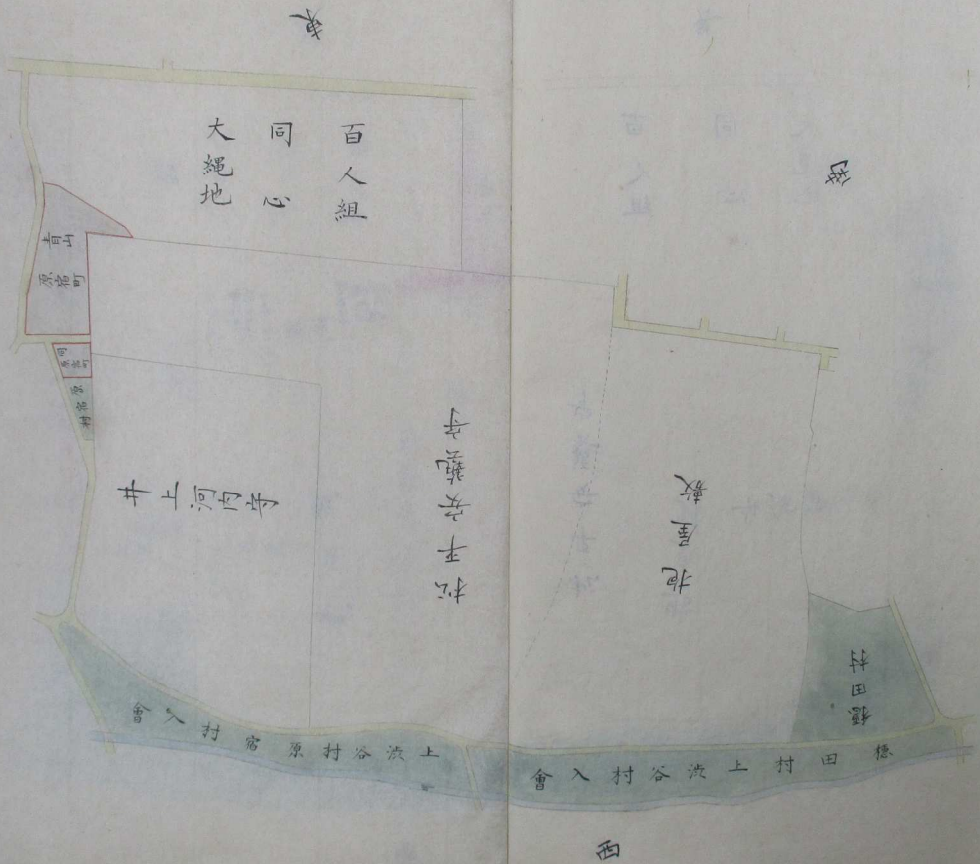 東
百人組
同心
大縄地
青山
原宿町
同
原宿町
原宿村
井上河内守
松平安藝守
抱屋敷
穏田村
上渋谷村原宿村入會
穏田村上渋谷村入會
西